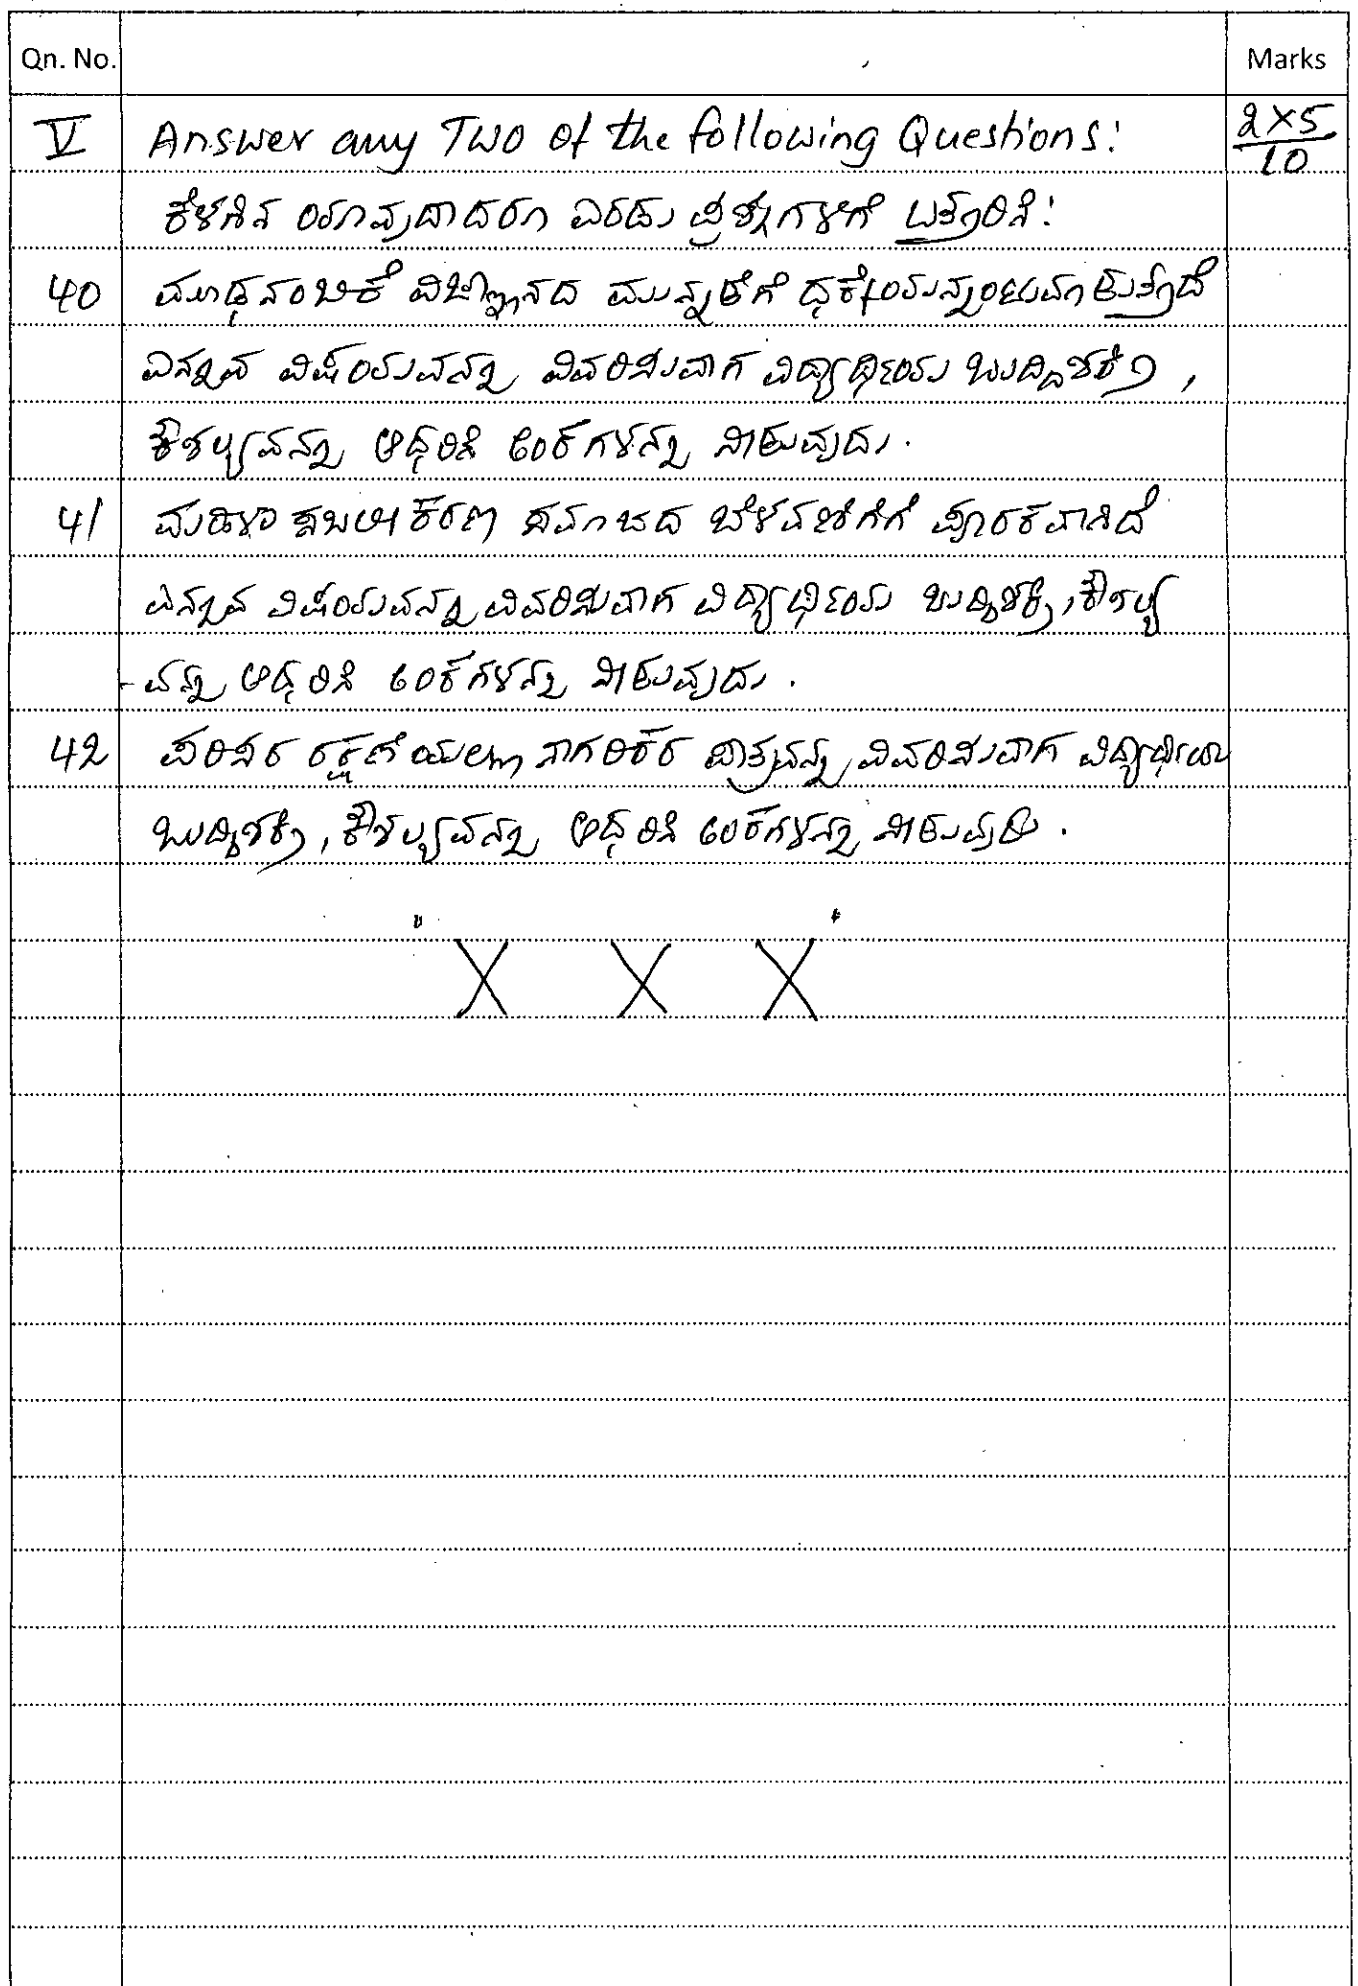 Qn. No. Marks
V Answer any Two of the following Questions: 2×5
10
ಕೆಳಗಿನ ಯಾವುದಾದರೂ ಎರಡು ಪ್ರಶ್ನೆಗಳಿಗೆ ಉತ್ತರಿಸಿ:
40 ಮೂಢನಂಬಿಕೆ ವಿಜ್ಞಾನದ ಮುನ್ನಡೆಗೆ ಧಕ್ಕೆಯನ್ನುಂಟುಮಾಡುತ್ತದೆ
ಎನ್ನುವ ವಿಷಯವನ್ನು ವಿವರಿಸುವಾಗ ವಿದ್ಯಾರ್ಥಿಯ ಬುದ್ಧಿಶಕ್ತಿ,
ಕೌಶಲ್ಯವನ್ನು ಆಧರಿಸಿ ಅಂಕಗಳನ್ನು ನೀಡುವುದು.
41 ಮಹಿಳಾ ಸಬಲೀಕರಣ ಸಮಾಜದ ಬೆಳವಣಿಗೆಗೆ ಪೂರಕವಾಗಿದೆ
ಎನ್ನುವ ವಿಷಯವನ್ನು ವಿವರಿಸುವಾಗ ವಿದ್ಯಾರ್ಥಿಯ ಬುದ್ಧಿಶಕ್ತಿ, ಕೌಶಲ್ಯ
-ವನ್ನು ಆಧರಿಸಿ ಅಂಕಗಳನ್ನು ನೀಡುವುದು.
42 ಪರಿಸರ ರಕ್ಷಣೆಯಲ್ಲಿ ನಾಗರಿಕರ ಪಾತ್ರವನ್ನು ವಿವರಿಸುವಾಗ ವಿದ್ಯಾರ್ಥಿಯ
ಬುದ್ಧಿಶಕ್ತಿ, ಕೌಶಲ್ಯವನ್ನು ಆಧರಿಸಿ ಅಂಕಗಳನ್ನು ನೀಡುವುದು.
X X X